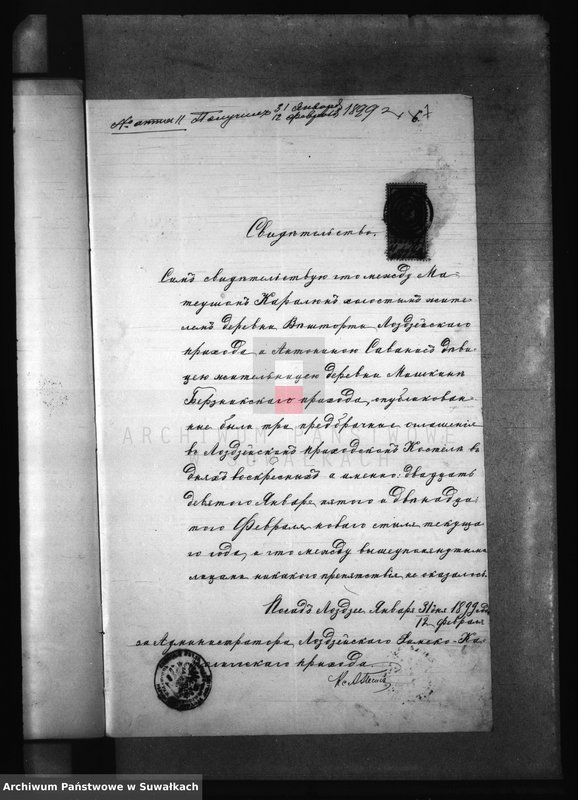 Къ актѣ 11 Получилъ 31 Января 1899
12 Февраля
Свидѣтельство.
Симъ свидѣтельствую что между Ма-
теушомъ Каралюнъ холостымъ жите-
лемъ деревни Вашторты Лоздзейскаго
прихода и Антониною Саванисъ дѣви-
цею жительницею деревни Машкинь
Бержникскаго прихода, опубликован-
ные были три предбрачныя оглашенія
въ Лоздзейскомъ приходскомъ Костелѣ въ
дняхъ воскресныхъ а именно: двадцать
девятаго Января, пятаго и двѣнадца-
таго Февраля новаго стиля текуща-
го года, и что между вышеупомянутыми
лицами никакого препятствія не оказалось.
Посадъ Лоздзее Января 31 дня 1899 года
12 Февраля
за Администратора Лоздзейскаго Римско-Ка-
толическаго прихода
ARCHIWUM PAŃSTWOWE
W SUWAŁKACH
Archiwum Państwowe w Suwałkach